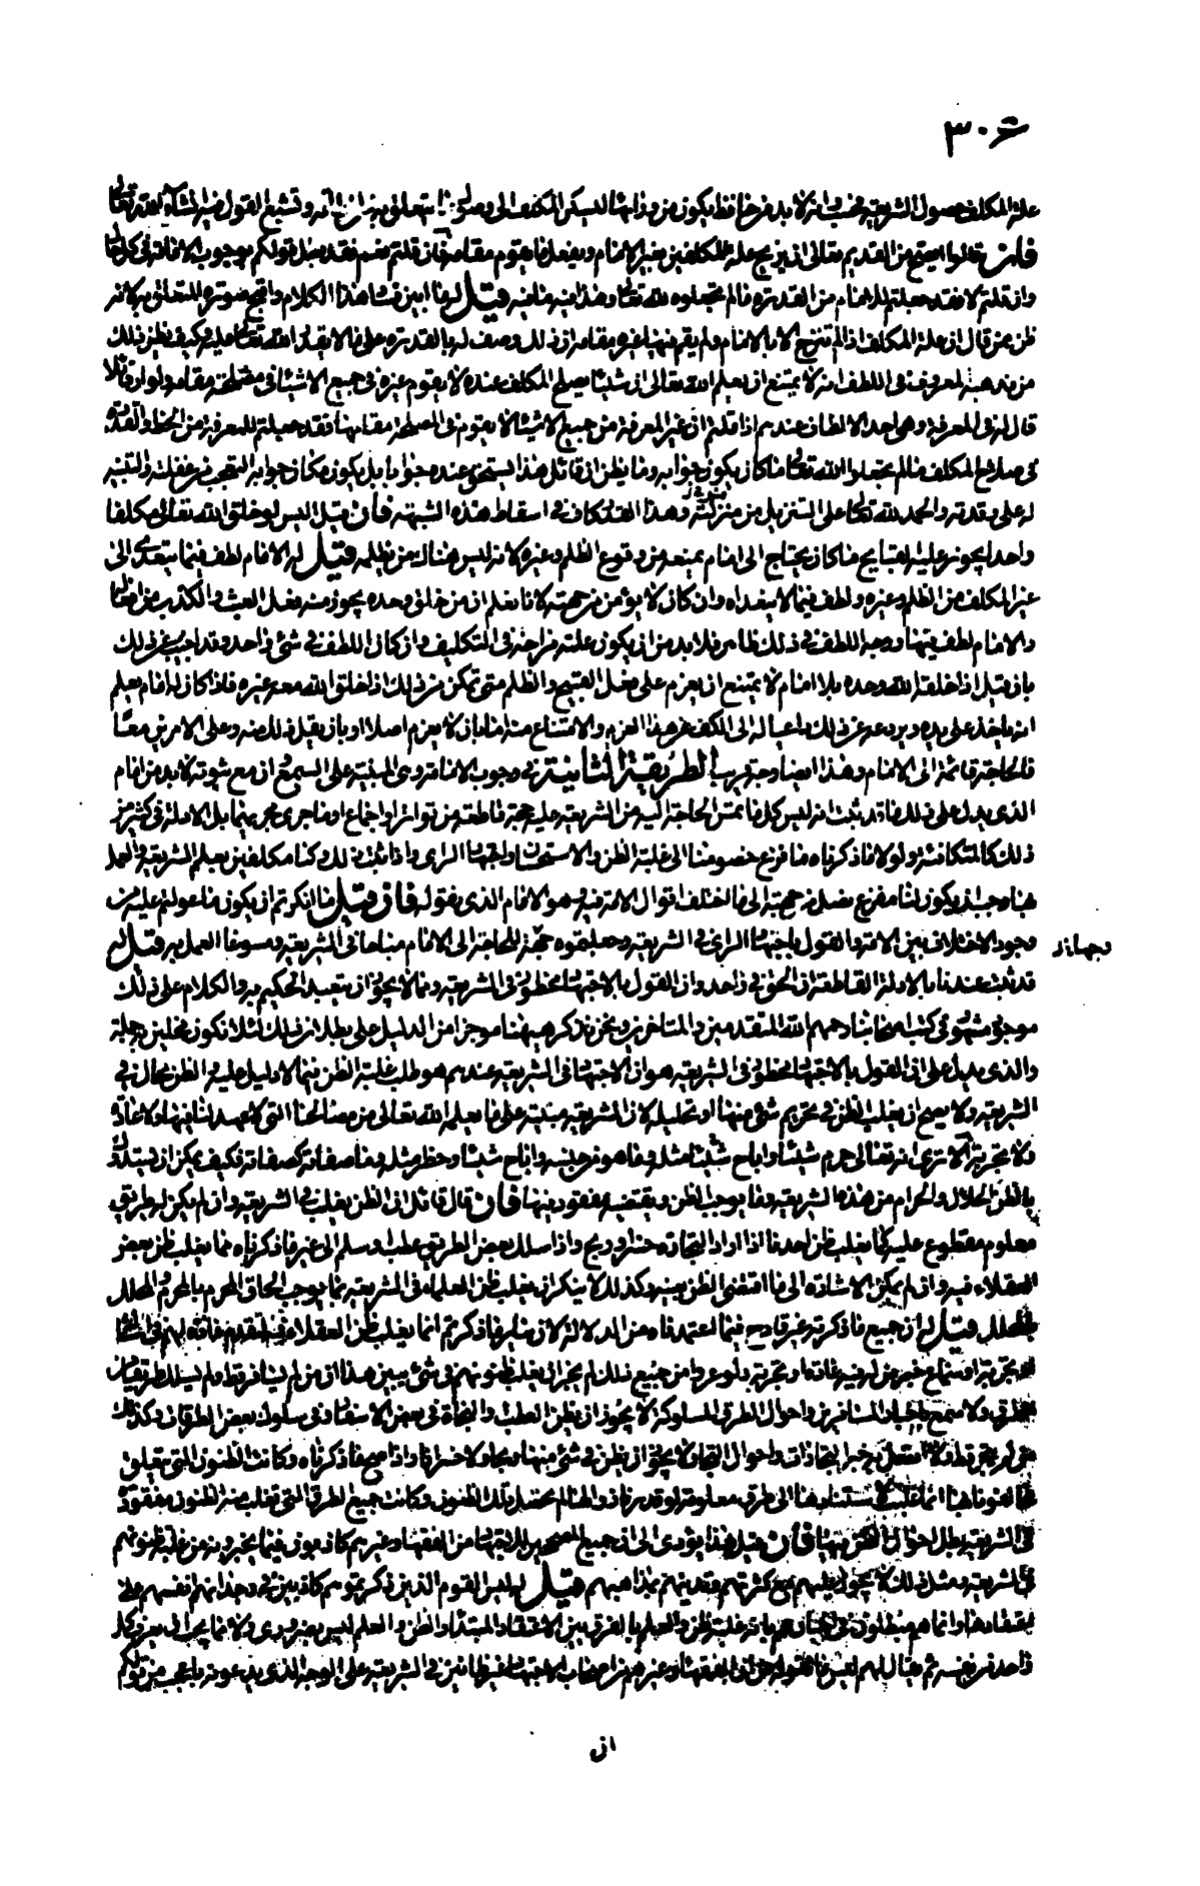 ٣٠٦
علة المكلف حصول الشريعة فيجب انه لا بد من حافظ يكون من وراءها ليسكن المكلف الى وصول ما يتعلق به من
فان قالوا يصح من القديم تعالى ان يزيح علة المكلفين بغير الامام ويفعل ما يقوم مقامه فان قلتم نعم فقد بطل قولكم بوجوب الامامة في كل حال
وان قلتم لا فقد جعلتم للامام من القدرة ما لم تجعلوه لله تعالى وهذا فيه ما فيه قيل لهم ما ابين فساد هذا الكلام واقبح صورة المتعلق به لانه
ظن بمن قال ان علة المكلف اذا لم تنزح الا بالامام ولم يقم فيها غيره مقامه ان ذلك وصف له بالقدرة على ما لا يقدر الله تعالى عليه وكيف يظن ذلك
من مذهبه المعروف في اللطف انه لا يمتنع ان يعلم الله تعالى ان شيئا يصلح المكلف عنده لا يقوم غيره في جميع الاشياء في مصلحته مقامه ولو ان قائلا
قال له في المعرفة وهي احد الالطاف عندهم اذا قلتم ان غير المعرفة من جميع الاشياء لا يقوم في المصلحة مقامها فقد جعلتم للمعرفة من الحظ والقدرة
في صلاح المكلف ما لم تجعلوا الله تعالى ما كان يكون جوابه وما يظن ان قائل هذا يستحق عنده جوابا بل يكون مكان جوابه التعجب من غفلته والتنبيه
له على رقدته والحمد لله تعالى على التنزيل من منزلته وهذا القدر كاف في اسقاط هذه الشبهة فان قيل اليس لو خلق الله تعالى مكلفا
واحدا يجوز عليه القبايح ما كان يحتاج الى امام يمنعه من وقوع الظلم وغيره لانه ليس هناك من يظلمه قيل له الامام لطف فيما يتعدى الى
غير المكلف من الظلم وغيره ولطف فيما لا يتعداه وان كان لا يؤمن من جهته لانا نعلم ان من خلق وحده يجوز منه فعل العبث والكذب
والامام لطف فيها ووجه اللطف في ذلك ظاهر فلا بد من ان يكون علته مزاحة في التكليف وان كان اللطف في شئ واحد وقد اجيب عن ذلك
بان قيل اذا خلقه الله وحده بلا امام لا يمتنع ان يعزم على فعل القبيح والظلم متى تمكن من ذلك اذا خلق الله معه غيره فاذا كان له امام يعلم
انه ياخذ على يده ويردعه عن ذلك داعيا له الى الكف عن هذا العزم والامتناع منه اما بان لا يعزم اصلا او بان يقل ذلك منه وعلى الامرين معا
فالحاجة قائمة الى الامام وهذا ايضا وجه قريب الطريقة الثانية في وجوب الامامة وهي المبنية على السمع ان مع ثبوته لا بد من امام
الذي يدل على ذلك ما قد ثبت انه ليس كل ما تمس الحاجة اليه من الشريعة عليه حجة قاطعة من تواتر او اجماع او ما جرى مجريهما بل الادلة في كثير من
ذلك كالمتكافئة ولولا ما ذكرناه ما فزع خصومنا الى غلبة الظن والاستحسان واجتهاد الراى واذا ثبت ذلك وكنا مكلفين بعلم الشريعة والعمل
بها وجب ان يكون لنا مفزع نصل من جهته الى ما اختلف اقوال الامة فيه وهو الامام الذي نقوله فان قيل ما انكرتم ان يكون ما عولتم عليه من
وجود الاختلاف بين الامة والقول باجتهاد الراى في الشريعة وجعلتموه جهة للحاجة الى الامام مباحا في الشريعة ومسوغا العمل به قيل له
وجهاز
قد ثبت عندنا بالادلة القاطعة ان الحق في واحد وان القول بالاجتهاد محظور في الشريعة ومما لا يجوز ان يتعبد الحكيم به والكلام على ذلك
موجود مشهور في كتب اصحابنا رحمهم الله المتقدمين والمتاخرين ونحن نذكر ههنا موجزا من الدليل على بطلان ذلك لئلا نكون مخلين بجملة
والذي يدل على ان القول بالاجتهاد محظور في الشريعة هو ان الاجتهاد في الشريعة عندهم هو طلب غلبة الظن فيما لا دليل عليه والظن لا مجال له في
الشريعة ولا يصح ان يغلب الظن في تحريم شئ منها او تحليله لان الشريعة مبنية على ما يعلمه الله تعالى من مصالحنا التي لا عهد لنا بها ولا عادة
ولا تجربة الا ترى انه تعالى حرم شيئا واباح شيئا مثله وما هو من جنسه واباح شيئا وحظر مثله وما صفاته كصفاته فكيف يمكن ان يستدل
بالظن الحلال والحرام من هذه الشريعة وما يوجب الظن ويقتضيه مفقود فيها فان قال قائل ان الظن يغلب في الشريعة وان لم يكن له طريق
معلوم مقطوع عليه كما يغلب ظن احدنا اذا اراد التجارة خسر او ربح واذا سلك بعض الطريق عطب او سلم الى غير ما ذكرناه مما يغلب ظن بعض
العقلاء فيه وان لم يمكن الاشارة الى ما اقتضى الظن بعينه وكذلك لا ينكر ان يغلب ظن العلماء في الشريعة بما يوجب الحاق المحرم بالمحرم والمحلل
بالمحلل قيل له ان جميع ما ذكرته غير قادح فيما اعتمدناه من الدلالة لان سائر ما ذكرتم انما يغلب ظن العقلاء فيه لتقدم عادة لهم
تجربة او سماع خبر من له فيه عادة او تجربة ولو عروا من جميع ذلك لم يجز ان يغلب ظنونهم في شئ يبين هذا ان من لم يسافر قط ولم يسلك طريقا من
الطرق ولا سمع باخبار المسافرين واحوال الطرق المسلوكة لا يجوز ان يظن العطب والنجاة في بعض الاسفار وفي سلوك بعض الطرقات وكذلك
من لم يتجر قط ولا اتصل به خبر التجارات واحوال التجار لا يجوز ان يظن في شئ منها ربحا ولا خسرانا واذا صح ما ذكرناه وكانت الظنون التي تعلق
الشريعة بطل
في الشريعة ومثل ذلك لا يجوز عليهم مع كثرتهم وتدينهم بمذاهبهم قيل له ليس القوم الذين ذكرتموهم كاذبين في وجدانهم انفسهم على
اعتقادها وانما هم مبطلون في اخبارهم بانه غلبة ظن والعلم بالفرق بين الاعتقاد المبتدأ والظن والعلم ليس بضروري
ان